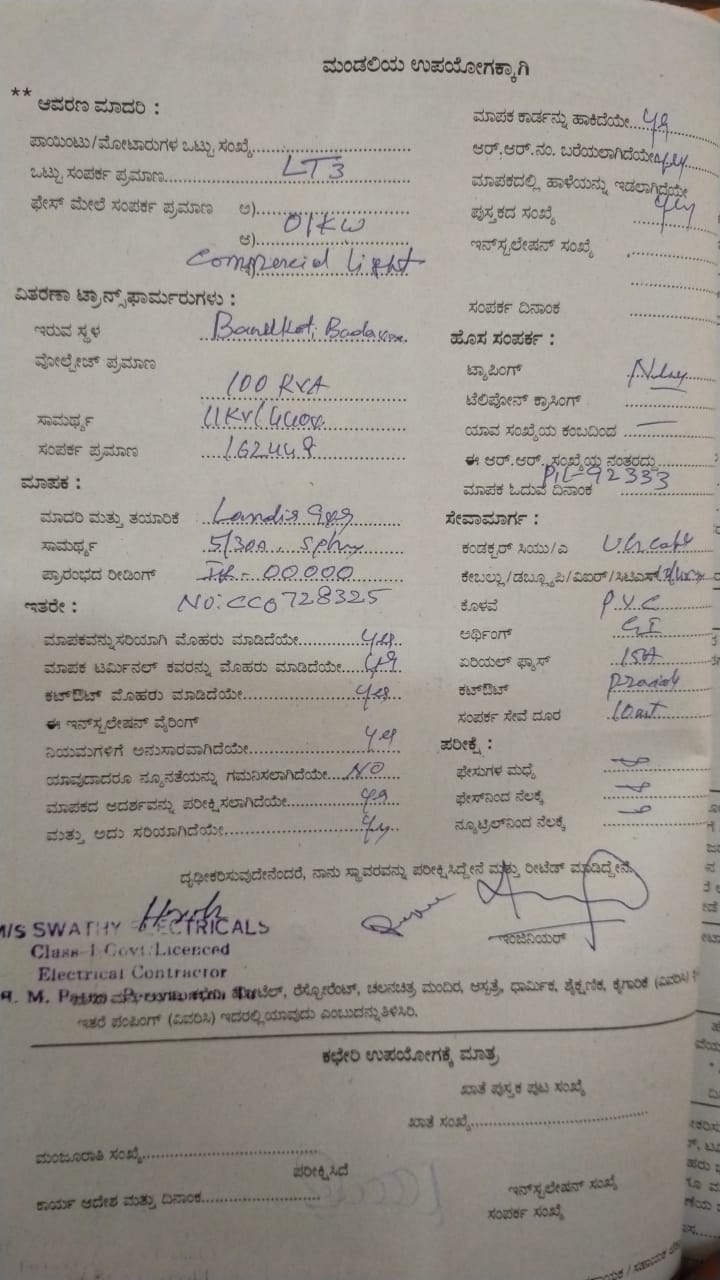 ಮಂಡಲಿಯ ಉಪಯೋಗಕ್ಕಾಗಿ
** ಆವರಣ ಮಾದರಿ :
ಪಾಯಿಂಟು/ಮೋಟಾರುಗಳ ಒಟ್ಟು ಸಂಖ್ಯೆ
ಒಟ್ಟು ಸಂಪರ್ಕ ಪ್ರಮಾಣ LT3
ಫೇಸ್ ಮೇಲೆ ಸಂಪರ್ಕ ಪ್ರಮಾಣ ಅ)
ಆ) 01KW
Commercial Light
ವಿತರಣಾ ಟ್ರಾನ್ಸ್‌ಫಾರ್ಮರುಗಳು :
ಇರುವ ಸ್ಥಳ
ವೋಲ್ಟೇಜ್ ಪ್ರಮಾಣ
100 KVA
ಸಾಮರ್ಥ್ಯ 11KV/440v
ಸಂಪರ್ಕ ಪ್ರಮಾಣ
ಮಾಪಕ :
ಮಾದರಿ ಮತ್ತು ತಯಾರಿಕೆ Landis gyr
ಸಾಮರ್ಥ್ಯ 5/30A
ಪ್ರಾರಂಭದ ರೀಡಿಂಗ್ IR - 00000
ಇತರೇ : No: CC0728325
ಮಾಪಕವನ್ನು ಸರಿಯಾಗಿ ಮೊಹರು ಮಾಡಿದೆಯೇ yes
ಮಾಪಕ ಟರ್ಮಿನಲ್ ಕವರನ್ನು ಮೊಹರು ಮಾಡಿದೆಯೇ yes
ಕಟ್‌ಔಟ್ ಮೊಹರು ಮಾಡಿದೆಯೇ yes
ಈ ಇನ್‌ಸ್ಟಲೇಷನ್ ವೈರಿಂಗ್
ನಿಯಮಗಳಿಗೆ ಅನುಸಾರವಾಗಿದೆಯೇ yes
ಯಾವುದಾದರೂ ನ್ಯೂನತೆಯನ್ನು ಗಮನಿಸಲಾಗಿದೆಯೇ NO
ಮಾಪಕದ ಆದರ್ಶವನ್ನು ಪರೀಕ್ಷಿಸಲಾಗಿದೆಯೇ yes
ಮತ್ತು ಅದು ಸರಿಯಾಗಿದೆಯೇ yes
ಮಾಪಕ ಕಾರ್ಡನ್ನು ಹಾಕಿದೆಯೇ yes
ಆರ್.ಆರ್.ನಂ. ಬರೆಯಲಾಗಿದೆಯೇ yes
ಮಾಪಕದಲ್ಲಿ ಹಾಳೆಯನ್ನು ಇಡಲಾಗಿದೆಯೇ
ಪುಸ್ತಕದ ಸಂಖ್ಯೆ yes
ಇನ್‌ಸ್ಟಲೇಷನ್ ಸಂಖ್ಯೆ
ಸಂಪರ್ಕ ದಿನಾಂಕ
ಹೊಸ ಸಂಪರ್ಕ :
ಟ್ಯಾಪಿಂಗ್
ಟೆಲಿಫೋನ್ ಕ್ರಾಸಿಂಗ್
ಯಾವ ಸಂಖ್ಯೆಯ ಕಂಬದಿಂದ
ಈ ಆರ್.ಆರ್. ಸಂಖ್ಯೆಯ ನಂತರದ್ದು
ಮಾಪಕ ಓದುವ ದಿನಾಂಕ PIL-92333
ಸೇವಾಮಾರ್ಗ :
ಕಂಡಕ್ಟರ್ ಸಿಯು/ಎ
ಕೇಬಲ್ಲು/ಡಬ್ಲ್ಯೂಪಿ/ವಿಐರ್/ಸಿಟಿಎಸ್
ಕೊಳವೆ P.V.C
ಅರ್ಥಿಂಗ್ GI
ಏರಿಯಲ್ ಫ್ಯೂಸ್ 15A
ಕಟ್‌ಔಟ್
ಸಂಪರ್ಕ ಸೇವೆ ದೂರ 10mt
ಪರೀಕ್ಷೆ :
ಫೇಸುಗಳ ಮಧ್ಯೆ
ಫೇಸ್‌ನಿಂದ ನೆಲಕ್ಕೆ
ನ್ಯೂಟ್ರಲ್‌ನಿಂದ ನೆಲಕ್ಕೆ
ದೃಢೀಕರಿಸುವುದೇನೆಂದರೆ, ನಾನು ಸ್ಥಾವರವನ್ನು ಪರೀಕ್ಷಿಸಿದ್ದೇನೆ ಮತ್ತು ರೀಟೆಡ್ ಮಾಡಿದ್ದೇನೆ.
ಇಂಜಿನಿಯರ್
M/S SWATHY ELECTRICALS
Class-I Govt. Licenced
Electrical Contractor
ಹೋಟೆಲ್, ರೆಸ್ಟೋರೆಂಟ್, ಚಲನಚಿತ್ರ ಮಂದಿರ, ಆಸ್ಪತ್ರೆ, ಧಾರ್ಮಿಕ, ಶೈಕ್ಷಣಿಕ, ಕೈಗಾರಿಕೆ (ವಿವರಿಸಿ)
ಇತರೆ ಪಂಪಿಂಗ್ (ವಿವರಿಸಿ) ಇದರಲ್ಲಿ ಯಾವುದು ಎಂಬುದನ್ನು ತಿಳಿಸಿರಿ.
ಕಛೇರಿ ಉಪಯೋಗಕ್ಕೆ ಮಾತ್ರ
ಖಾತೆ ಪುಸ್ತಕ ಪುಟ ಸಂಖ್ಯೆ
ಖಾತೆ ಸಂಖ್ಯೆ
ಮಂಜೂರಾತಿ ಸಂಖ್ಯೆ
ಪರೀಕ್ಷಿಸಿದೆ
ಕಾರ್ಯ ಆದೇಶ ಮತ್ತು ದಿನಾಂಕ
ಇನ್‌ಸ್ಟಲೇಷನ್ ಸಂಖ್ಯೆ
ಸಂಪರ್ಕ ಸಂಖ್ಯೆ